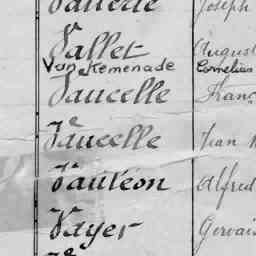 Vallet August
Van Kemenade Cornelius
Vaucelle Franç
Vaucelle Jean
Vauléon Alfred
Vayer Gervais